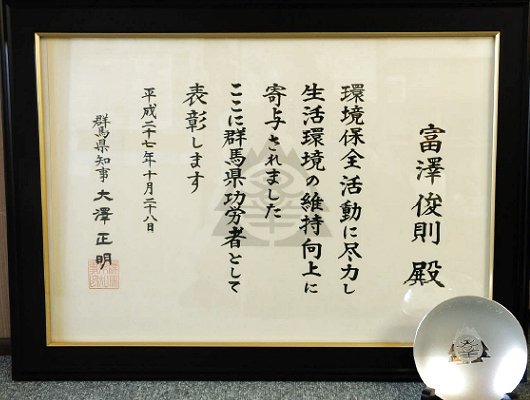 富澤俊則 殿
環境保全活動に尽力し
生活環境の維持向上に
寄与されました
ここに群馬県功労者として
表彰します
平成二十七年十月二十八日
群馬県知事 大澤正明